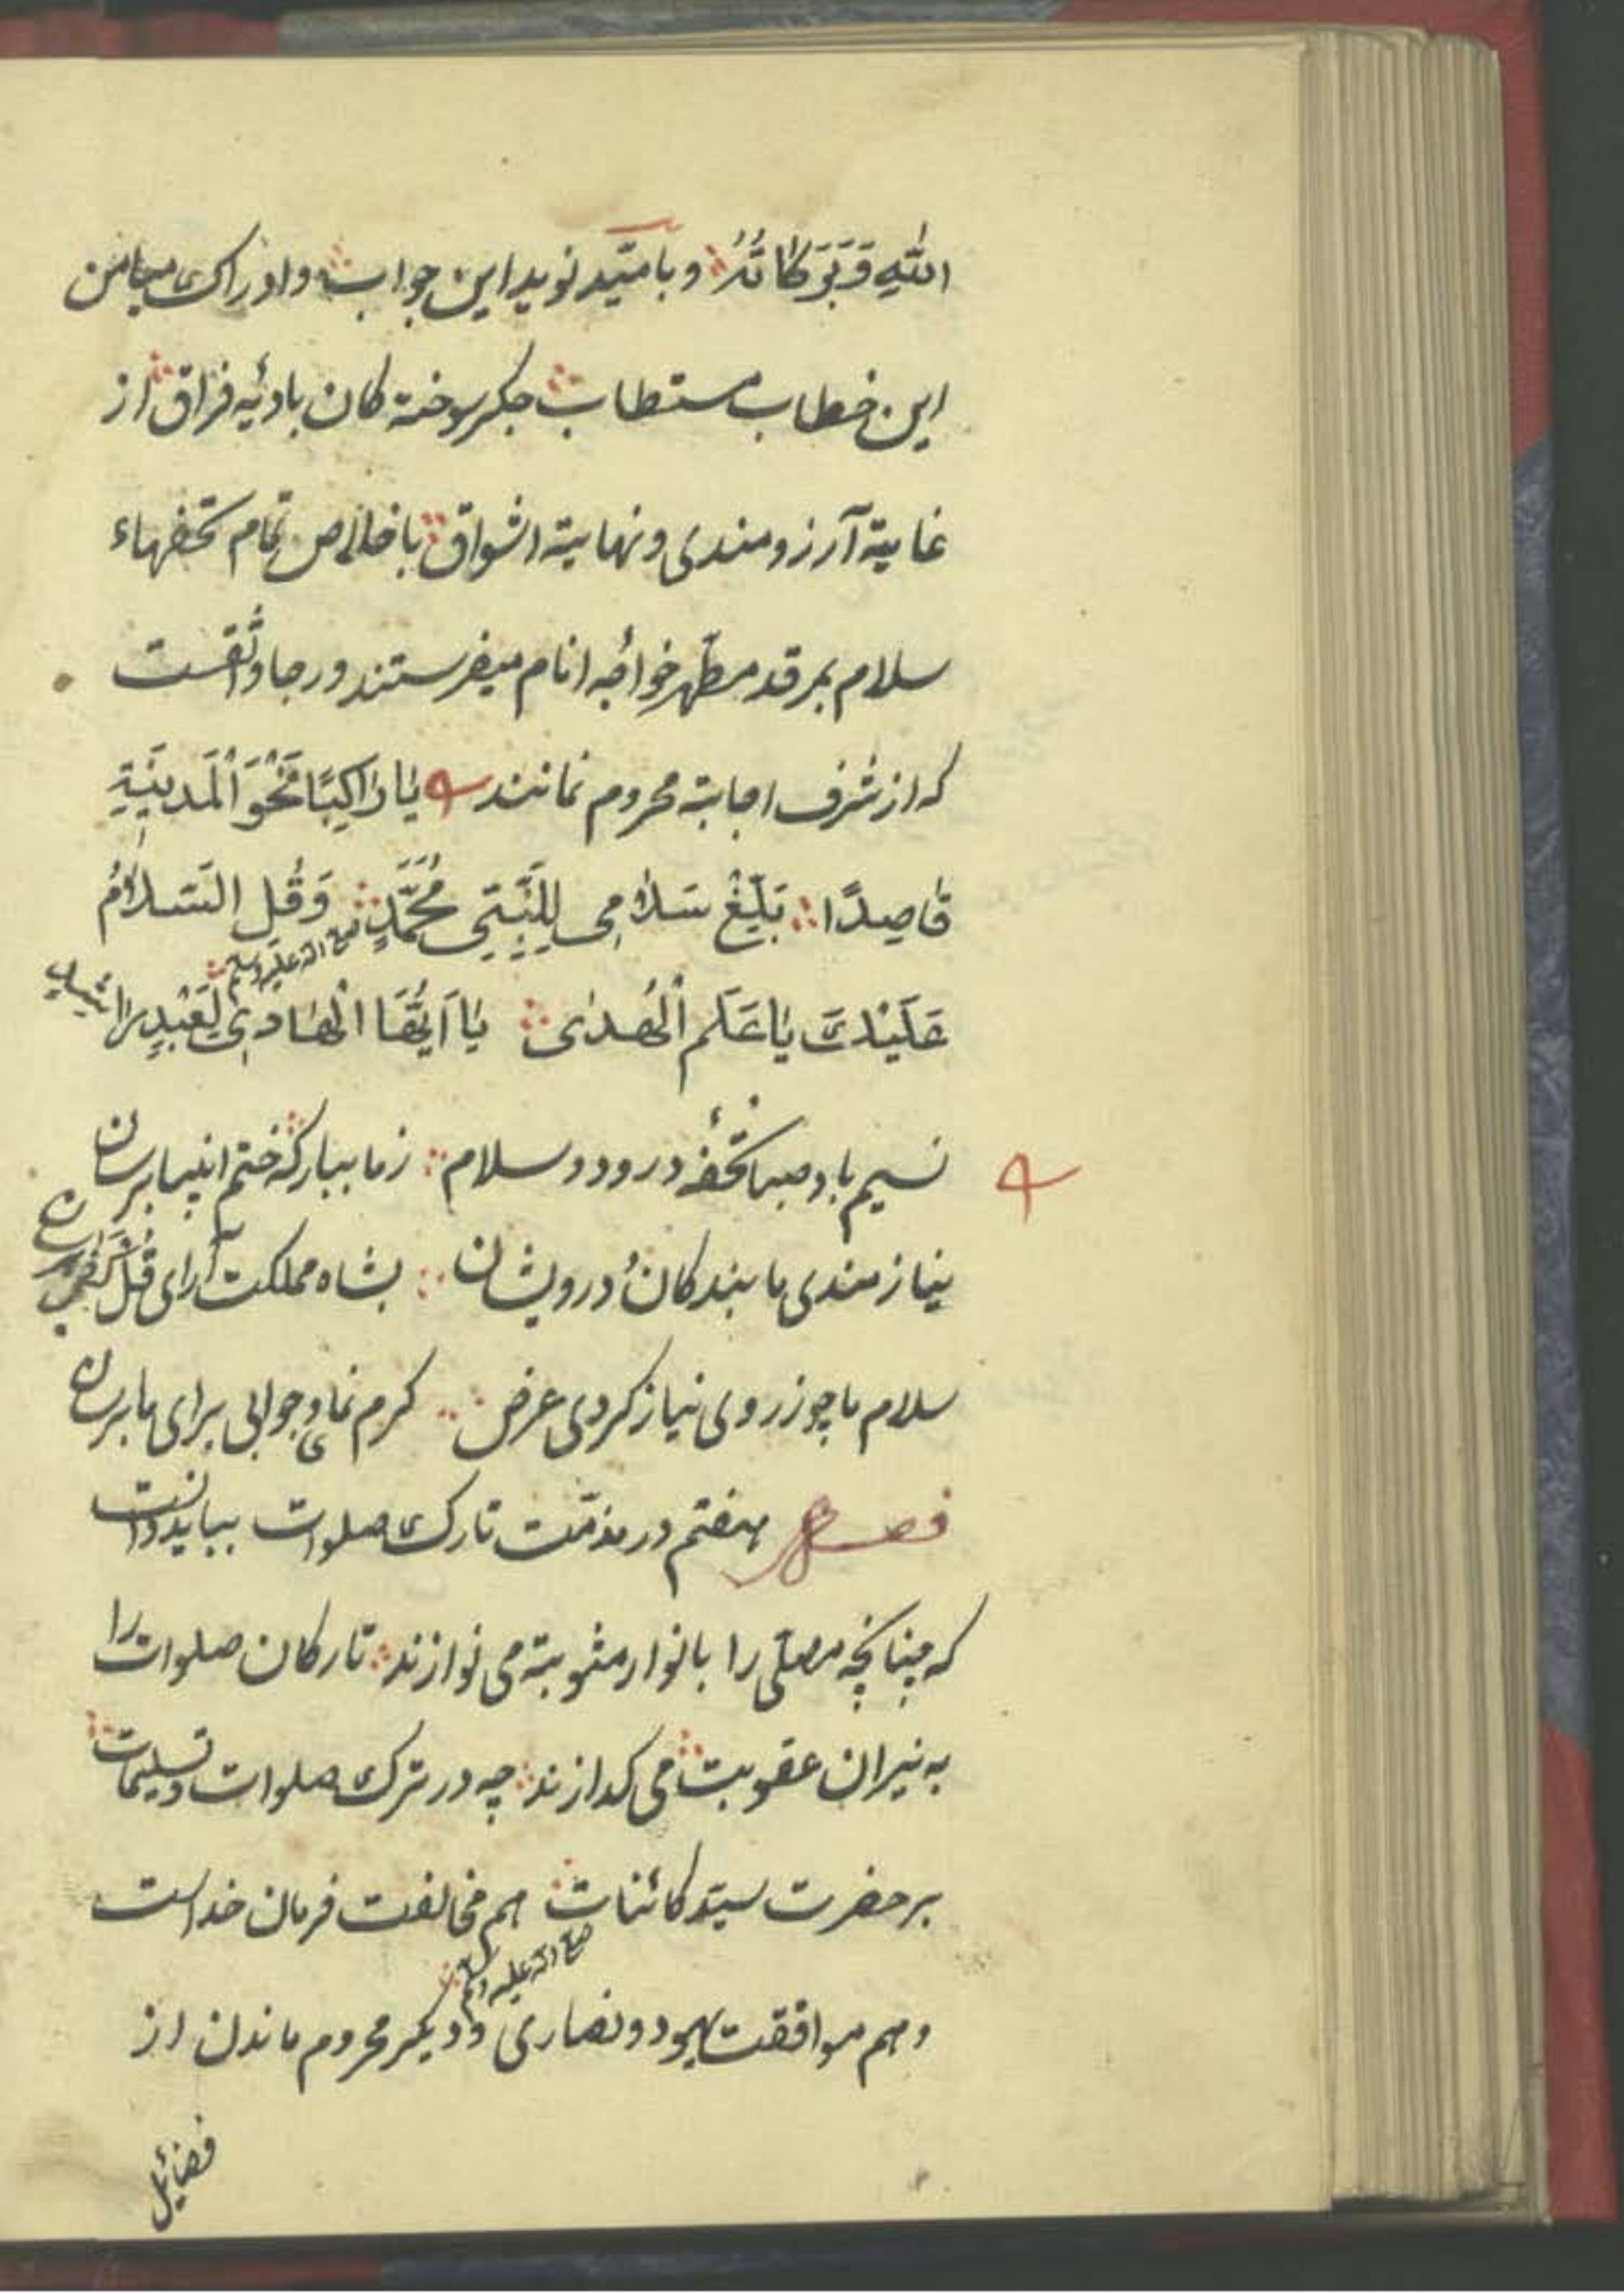 اللهِ وَبَرَكَاتُهُ وبامّید نوید این جواب وادراک میامن
این خطاب مستطاب جکر سوختهٔ کان بادئیه فراق از
غایة آرزومندی ونهایة اشواق باخلاص تمام تحفهاء
سلام بمرقد مطهر خواجه انام میفرستند ورجا واثقست
که از شرف اجابة محروم نمانند يَا رَاكِبًا نَحْوَ الْمَدِينَةِ
قَاصِدًا بَلِّغْ سَلَامِي لِلنَّبِيِّ مُحَمَّدٍ وَقُلِ السَّلَامُ
صلی الله علیه وسلم
عَلَيْكَ يَا عَلَمَ الْهُدَى يَا أَيُّهَا الْهَادِي لِعَبْدٍ
نسیم باد صبا تحفهٔ درود وسلام زما ببارکه ختم انبیا برسان
نیازمندی ما بندکان درویشان بشاه مملکت آرای قل کفی برسان
سلام ما چو ز روی نیاز کردی عرض کرم نمای وجوابی برای ما برسان
فصل هفتم در مذمّت تارک صلوات بباید دانست
که چنانچه مصلّی را بانوار مثوبة می نوازند تارکان صلوات را
به نیران عقوبت می کدازند چه در ترک صلوات وتسلیمات
بر حضرت سیّد کائنات هم مخالفت فرمان خداست
صلی الله علیه وسلم
وهم موافقت یهود ونصاری ودیکر محروم ماندن از
فضائیل